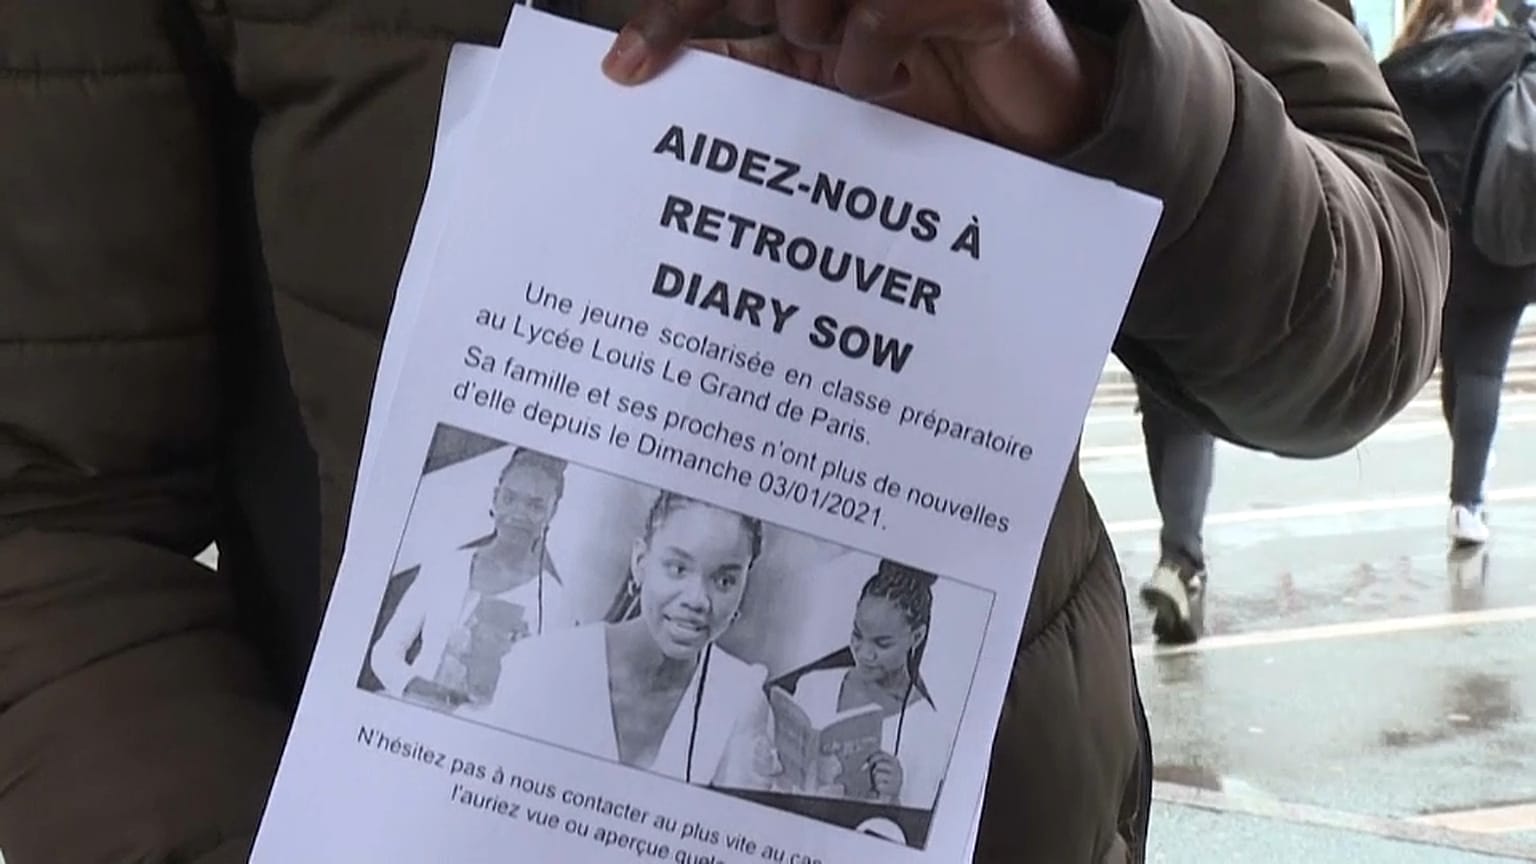 AIDEZ-NOUS À
RETROUVER
DIARY SOW
Une jeune scolarisée en classe préparatoire
au Lycée Louis Le Grand de Paris.
Sa famille et ses proches n'ont plus de nouvelles
d'elle depuis le Dimanche 03/01/2021.
N'hésitez pas à nous contacter au plus vite au cas
l'auriez vue ou aperçue